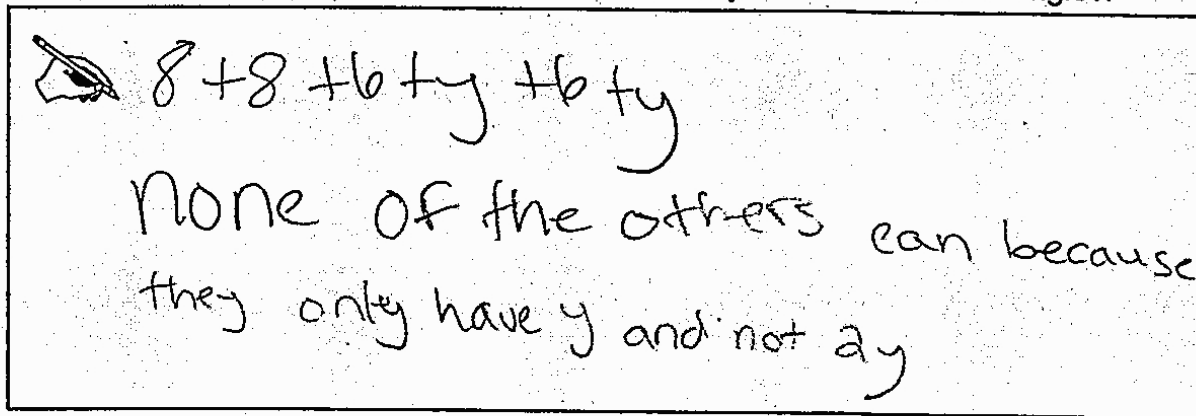 8+8+6+y+6+y
none of the others can because
they only have y and not 2y